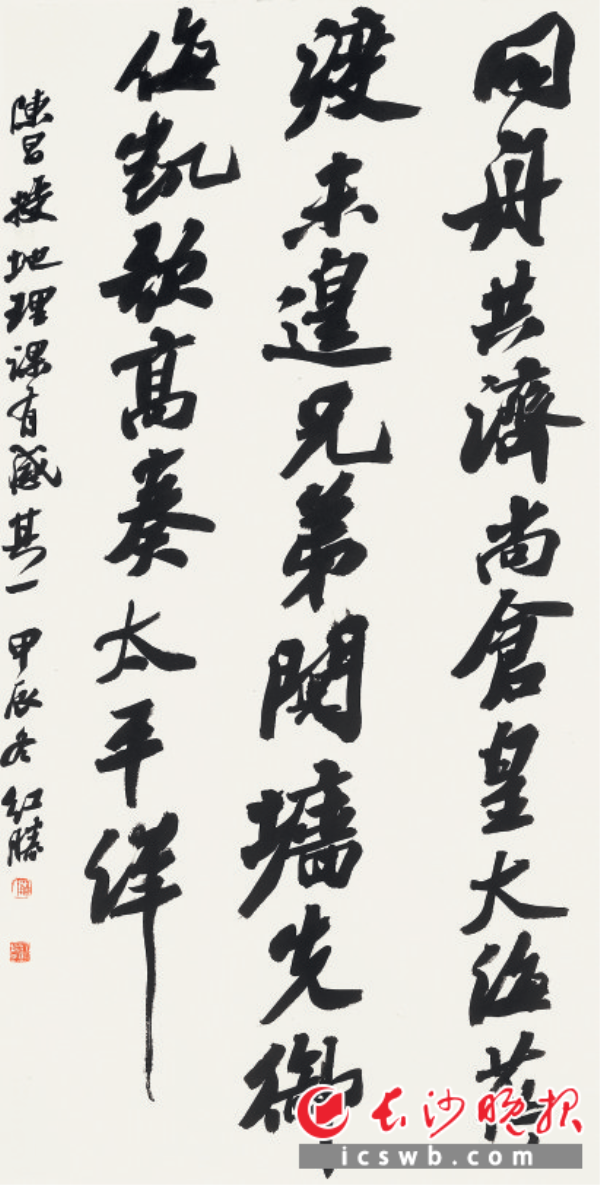 同舟共濟尚倉皇大海茫
渡未遑兄弟鬩墻先御
侮凱歌高奏太平洋
陳昌授地理課有感其一 甲辰冬 紅勝
长沙晚报
icswb.com